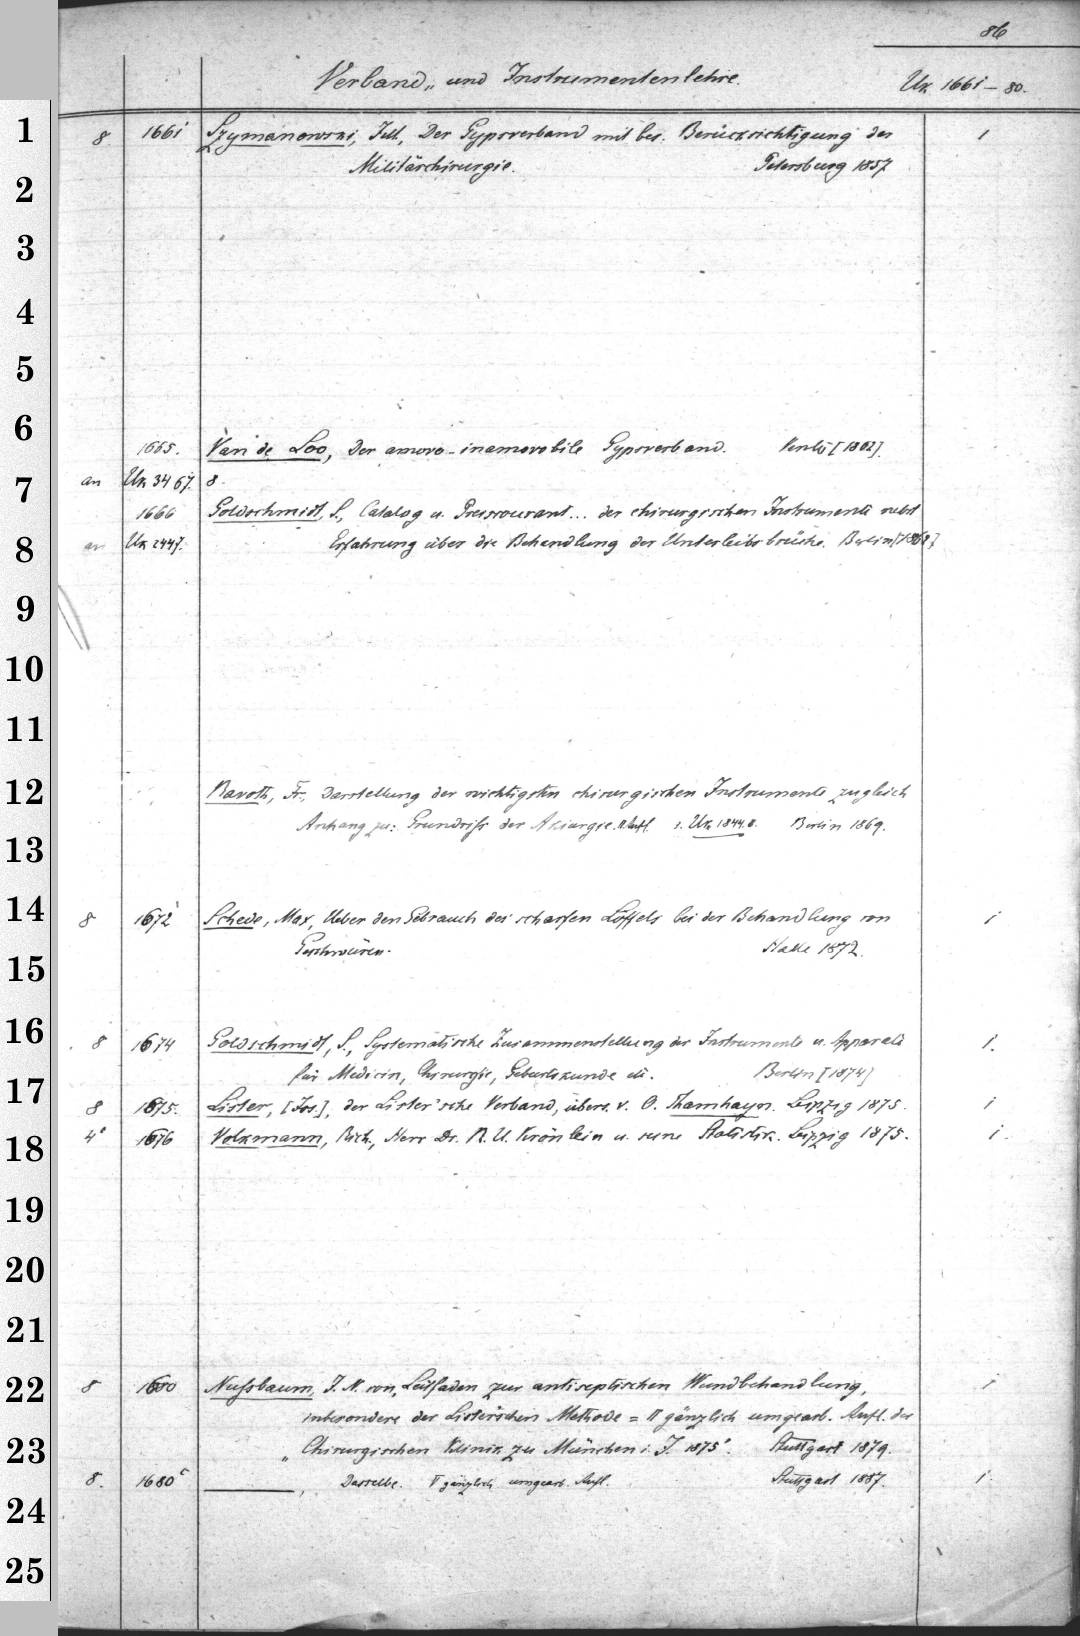 86
Verband- und Instrumentenlehre. Uk 1661-80.
1 8 1661 Szymanowski, Jul., Der Gypsverband mit bes. Berücksichtigung der 1
Militärchirurgie. Petersburg 1857
2
3
4
5
6
1665. Van de Loo, Der amovo-inamovobile Gypsverband. Venlo [1862].
7 an Uk 3467. 8.
1666 Goldschmidt, S., Catalog u. Preiscourant... der chirurgischen Instrumente nebst
8 an Uk 2447. Erfahrung über die Behandlung der Unterleibsbrüche. Berlin [1868]
9
10
11
12 Ravoth, Fr., Darstellung der wichtigsten chirurgischen Instrumente zugleich
Anhang zu: Grundriss der Akiurgie. II Aufl. s. Uk 1844.8. Berlin 1869.
13
14 8 1672 Schede, Max, Ueber den Gebrauch des scharfen Löffels bei der Behandlung von 1
Geschwüren. Halle 1872.
15
16 8 1674 Goldschmidt, S., Systematische Zusammenstellung der Instrumente u. Apparate 1.
für Medicin, Chirurgie, Geburtskunde etc. Berlin [1874]
17 8 1675. Lister, [Jos.], der Lister'sche Verband, übers. v. O. Thamhayn. Leipzig 1875. 1
18 4° 1676 Volkmann, Rich., Herr Dr. R. U. Krönlein u. seine Statistik. Leipzig 1875. 1.
19
20
21
22 8 1680 Nussbaum, J. N. von, Leitfaden zur antiseptischen Wundbehandlung, 1
insbesondere der Lister'schen Methode = II gänzlich umgearb. Aufl. der
23 „Chirurgischen Klinik zu München i. J. 1875". Stuttgart 1879.
8. 1680c ———, Dasselbe. V gänzlich umgearb. Aufl. Stuttgart 1887. 1.
24
25